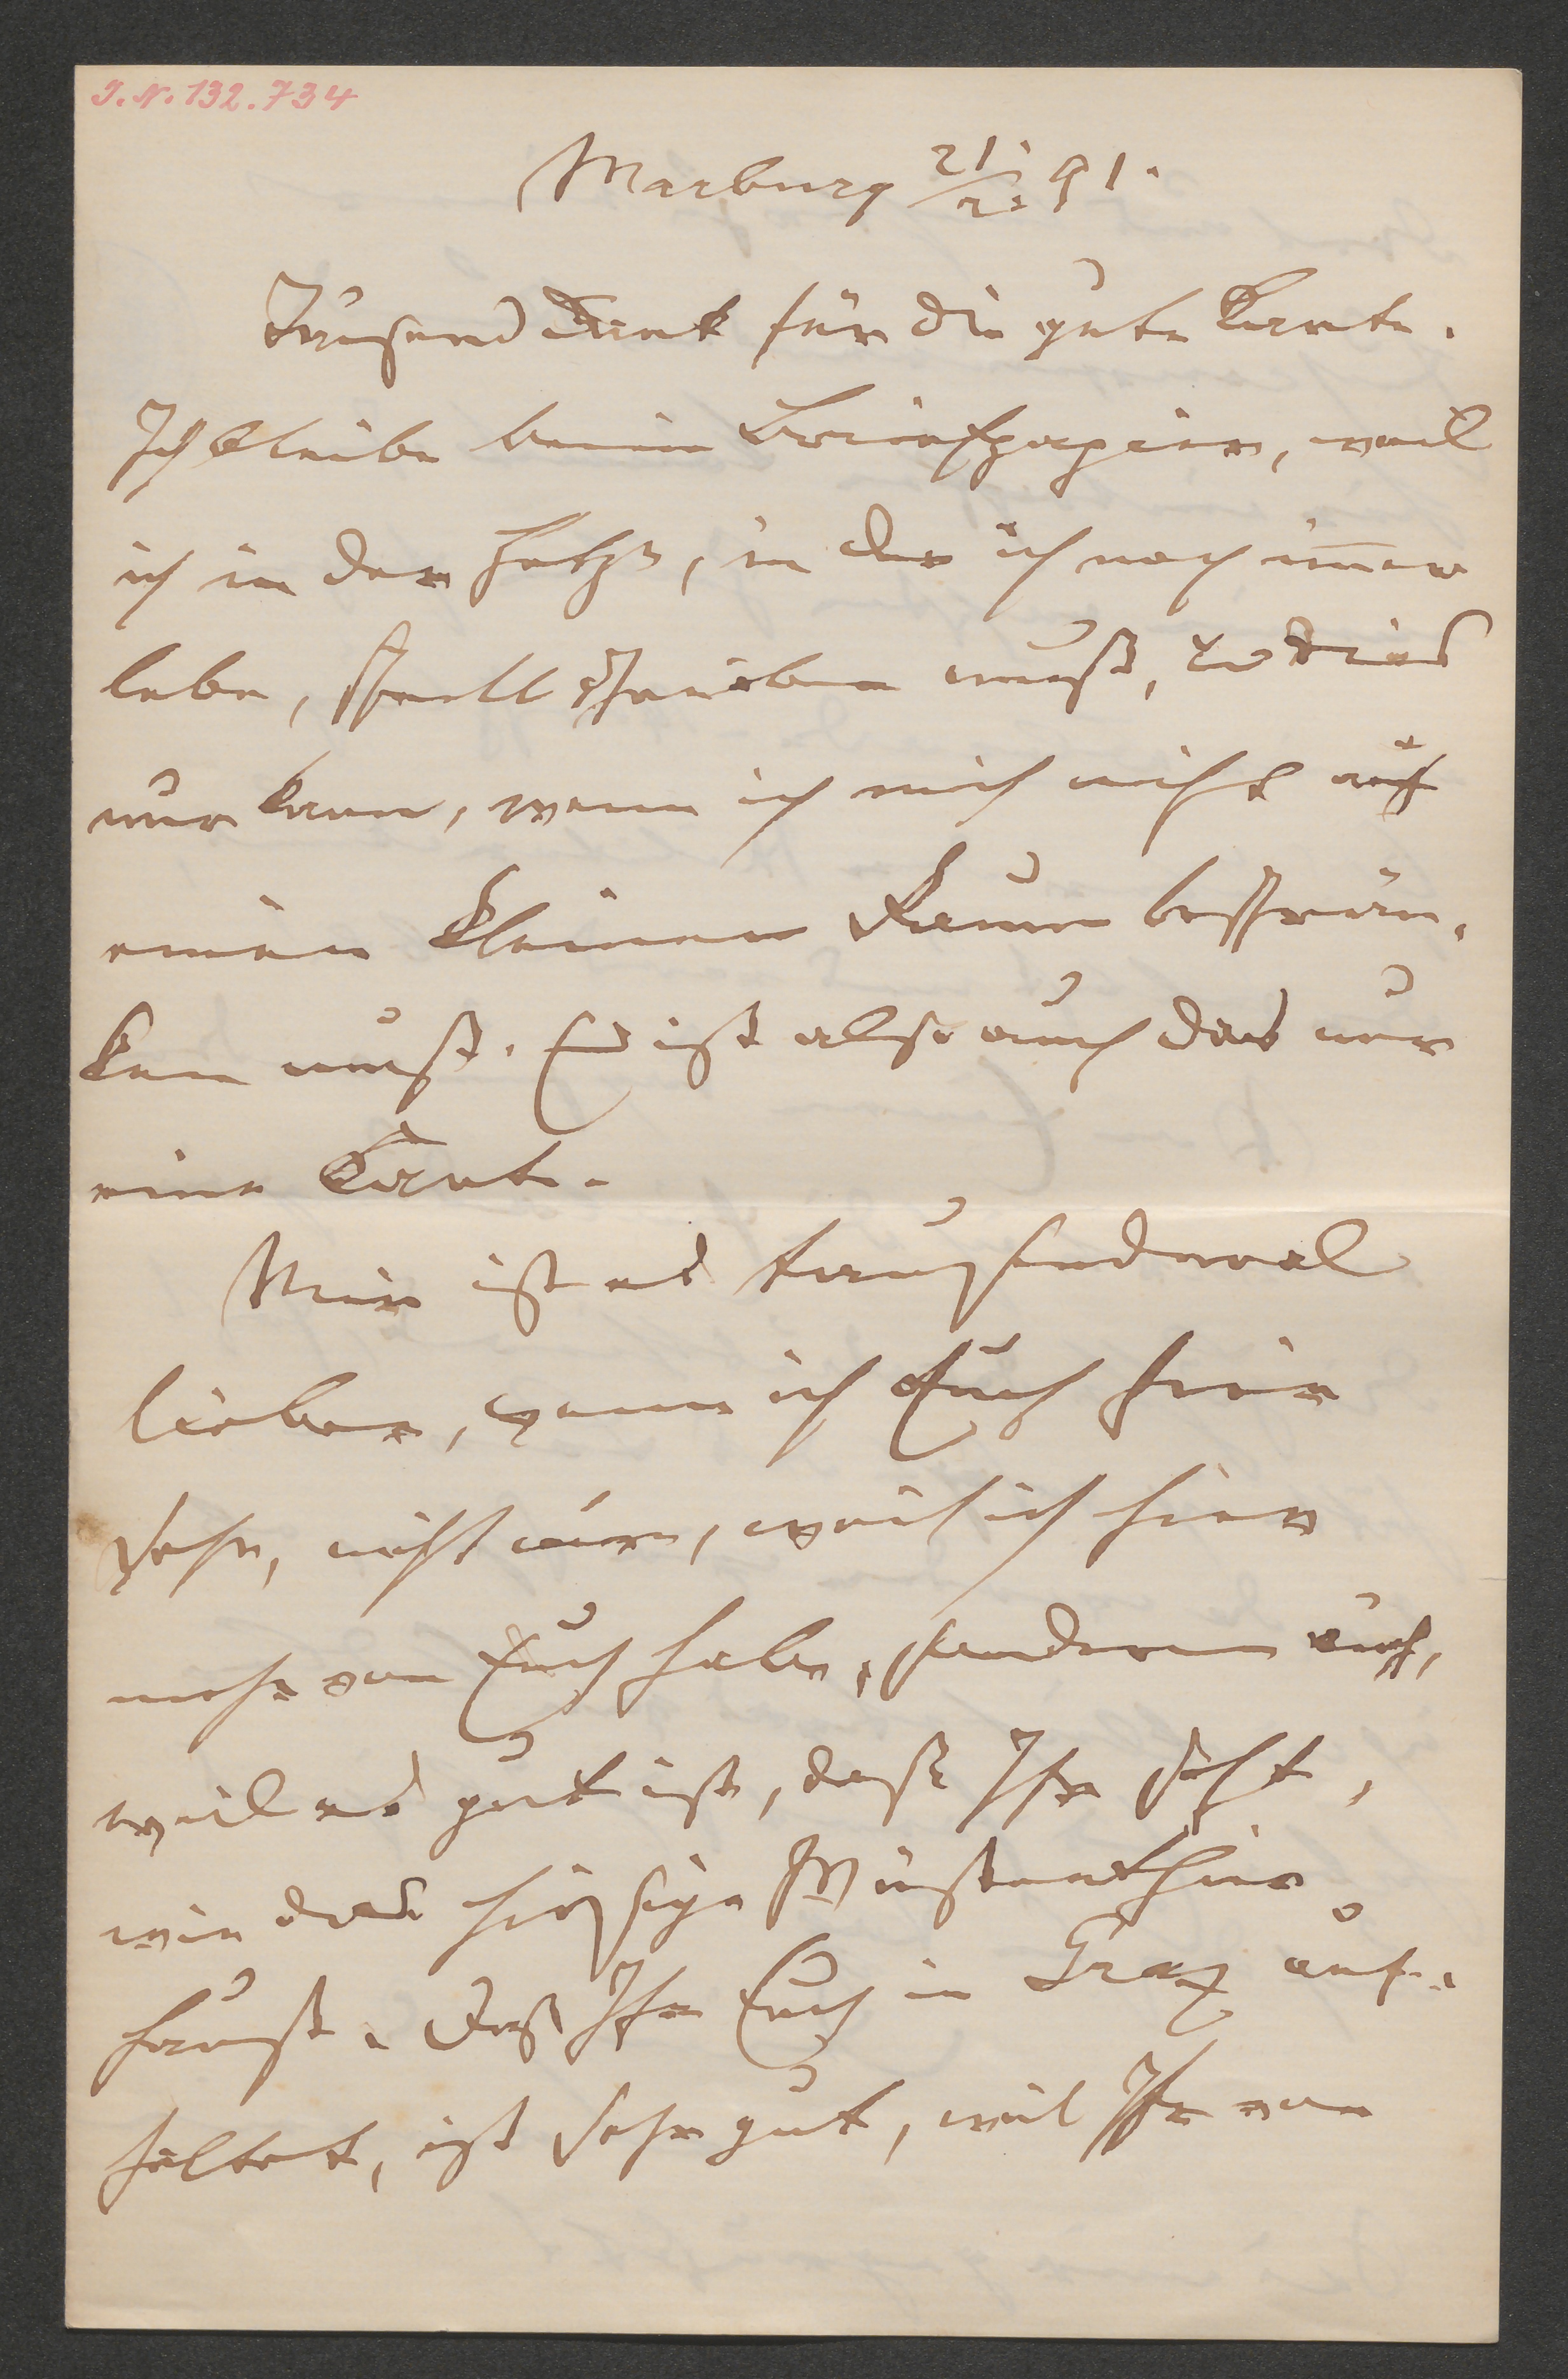 I. N. 132.734
Marburg 21./2. 91.
Tausend Dank für die gute Karte.
Ich bleibe beim Briefpapier, weil
ich in der Hetze, in der ich noch im̄er
lebe, schnell schreiben muß, u dies
nur kann, wenn ich mich nicht auf
einen kleinen Raum beschrän-
ken muß. Es ist also auch das nur
eine Karte.
Mir ist es tausendmal
lieber, wenn ich Euch hier
sehe, nicht nur, weil ich hier
mehr von Euch habe, sondern auch,
weil es gut ist, daß Ihr seht,
wie das hiesige Wüstenthier
haust. Daß Ihr Euch in Graz auf-
haltet, ist sehr gut, weil Ihr von